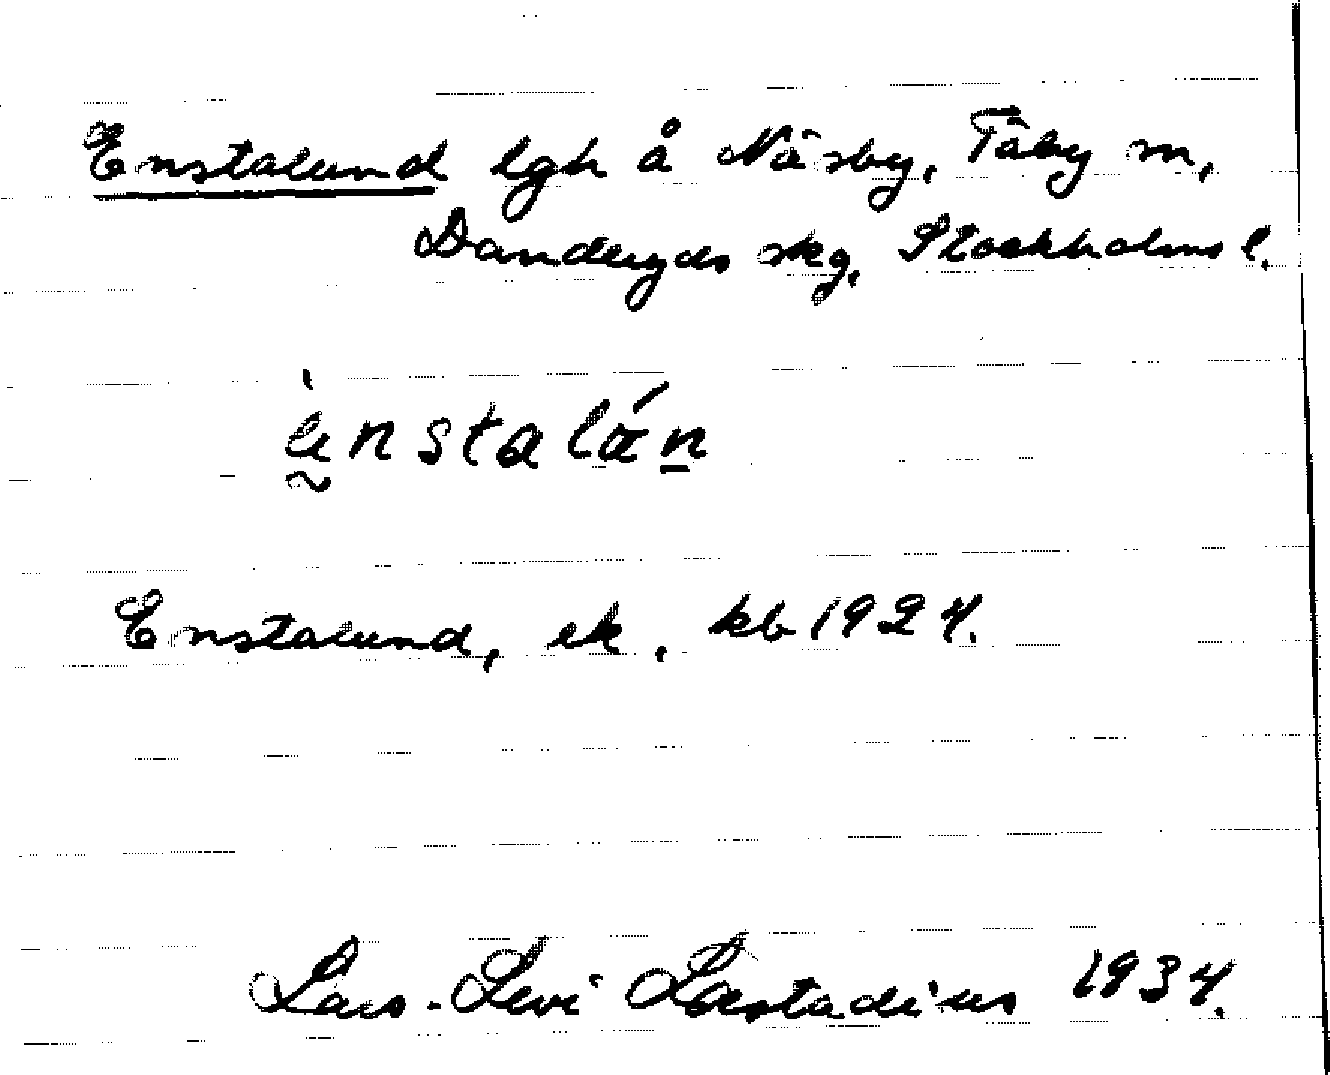 Enstalund lgh å Näsby, Täby sn,
Danderyds skg, Stockholms l.
ènstalán
Enstalund, ek. kb 1924.
Lars-Levi Læstadius 1934.